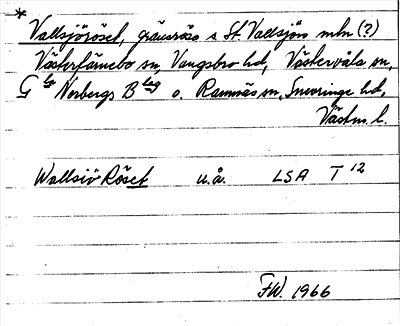 *
Vallsjöröset, gränsröse s St. Vallsjön mln (?)
Västerfärnebo sn, Vangsbro hd, Västervåla sn,
Gla Norbergs Blag o. Ramnäs sn, Snevringe hd,
Västm. l.
Wallsiö Röset u.å. LSA T 12
F.W. 1966